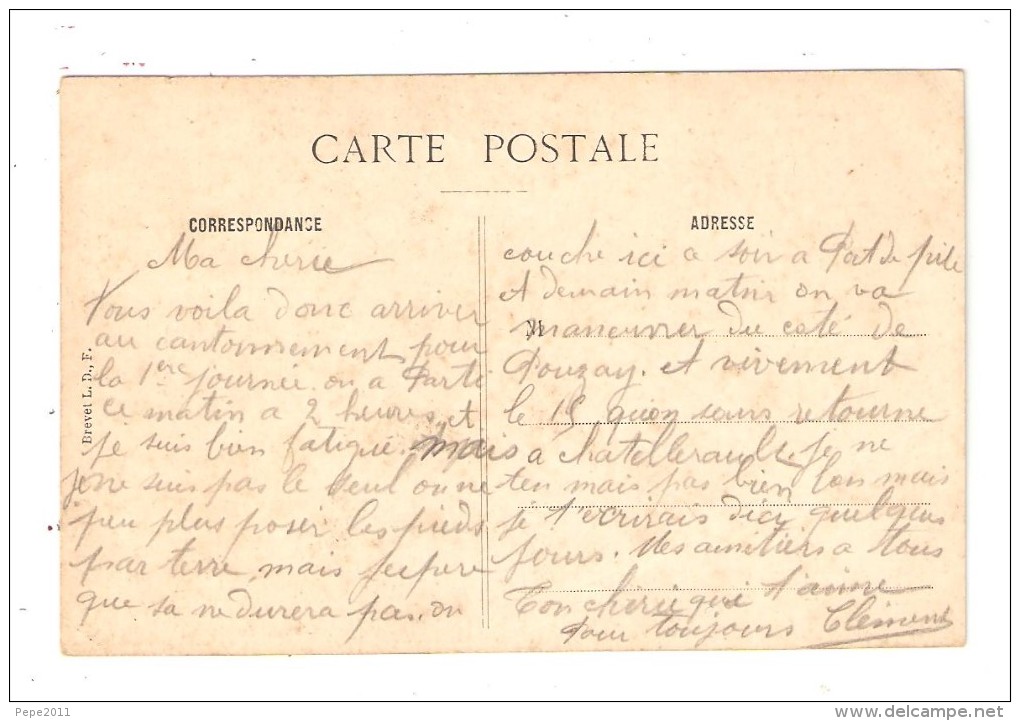 CARTE POSTALE
CORRESPONDANCE
Ma cherie
Nous voila donc arriver
au cantonnement, pour
la 1ere journée. on a parti
ce matin a 2 heures, et
je suis bien fatigué. mais
je ne suis pas le seul on ne
peu plus poser les pieds
par terre, mais jespere
que sa ne durera pas. on
ADRESSE
couche ici ce soir a Port de pile
et demain matin on va
M
maneuvrer du coté de
Pouzay. et vivement
le 15 quon sans retourne
a chatellerault. je ne
ten mais pas bien lon mais
je t'ecrirais dici quelques
jours. Mes amitiers a tous
Ton cherie qui t'aime
pour toujours Clément
Brevet L. D., F.
Pepe2011
delcampe.net